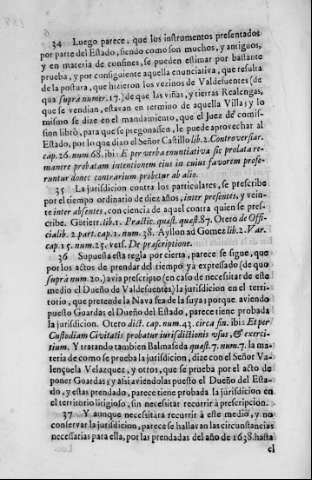 34 Luego parece, que los instrumentos presentados
por parte del Estado, siendo como son muchos, y antiguos,
y en materia de confines, se pueden estimar por bastante
prueba, y por consiguiente aquella enunciativa, que resulta
de la postura, que hizieron los vezinos de Valdefuentes (de
qua suprà numer. 17.) de que las viñas, y tierras Realengas,
que se vendian, estavan en termino de aquella Villa; y lo
mismo se dize en el mandamiento, que el Juez de comis-
sion librò, para que se pregonassen, le puede aprovechar al
Estado, por lo que dixo el Señor Castillo lib. 2. Controversiar.
cap. 26. num. 68. ibi: E per verba enuntiativa sic prolata re-
manere probatam intentionem eius in cuius favorem profe-
runtur donec contrarium probetur ab alio.
35 La jurisdicion contra los particulares, se prescribe
por el tiempo ordinario de diez años, inter presentes, y vein-
te inter absentes, con ciencia de aquel contra quien se pres-
cribe. Gutierr. lib. 3. Practic. quæst. quæst. 87. Otero de Offi-
cialib. 2. part. cap. 2. num. 38. Ayllon ad Gomez lib. 2. Var.
cap. 15. num. 25. vers. De præscriptione.
36 Supuesta esta regla por cierta, parece se sigue, que
por los actos de prendar del tiempo yà expressado (de quo
suprà num. 20.) avia prescripto (en caso de necessitar de este
medio el Dueño de Valdefuentes) la jurisdicion en el terri-
torio, que pretende la Nava sea de la suya; porque aviendo
puesto Guardas el Dueño del Estado, parece tiene probada
la jurisdicion. Otero dict. cap. num. 43. circa fin. ibi: Et per
Custodiam Civitatis probatur iurisdictionis usus, & exerci-
tium. Y tratando tambien Balmaseda quæst. 7. num. 7. la ma-
teria de como se prueba la jurisdicion, dize con el Señor Va-
lençuela Velazquez, y otros, que se prueba por el acto de
poner Guardas; y assi aviendolas puesto el Dueño del Esta-
do, y estas prendado, parece tiene probada la jurisdicion en
el territorio litigioso, sin necessitar recurrir à prescripcion.
37 Y aunque necessitára recurrir à este medio, y no
conservar la jurisdicion, parece se hallan las circunstancias
necessarias para ella, por las prendadas del año de 1638. hasta
el